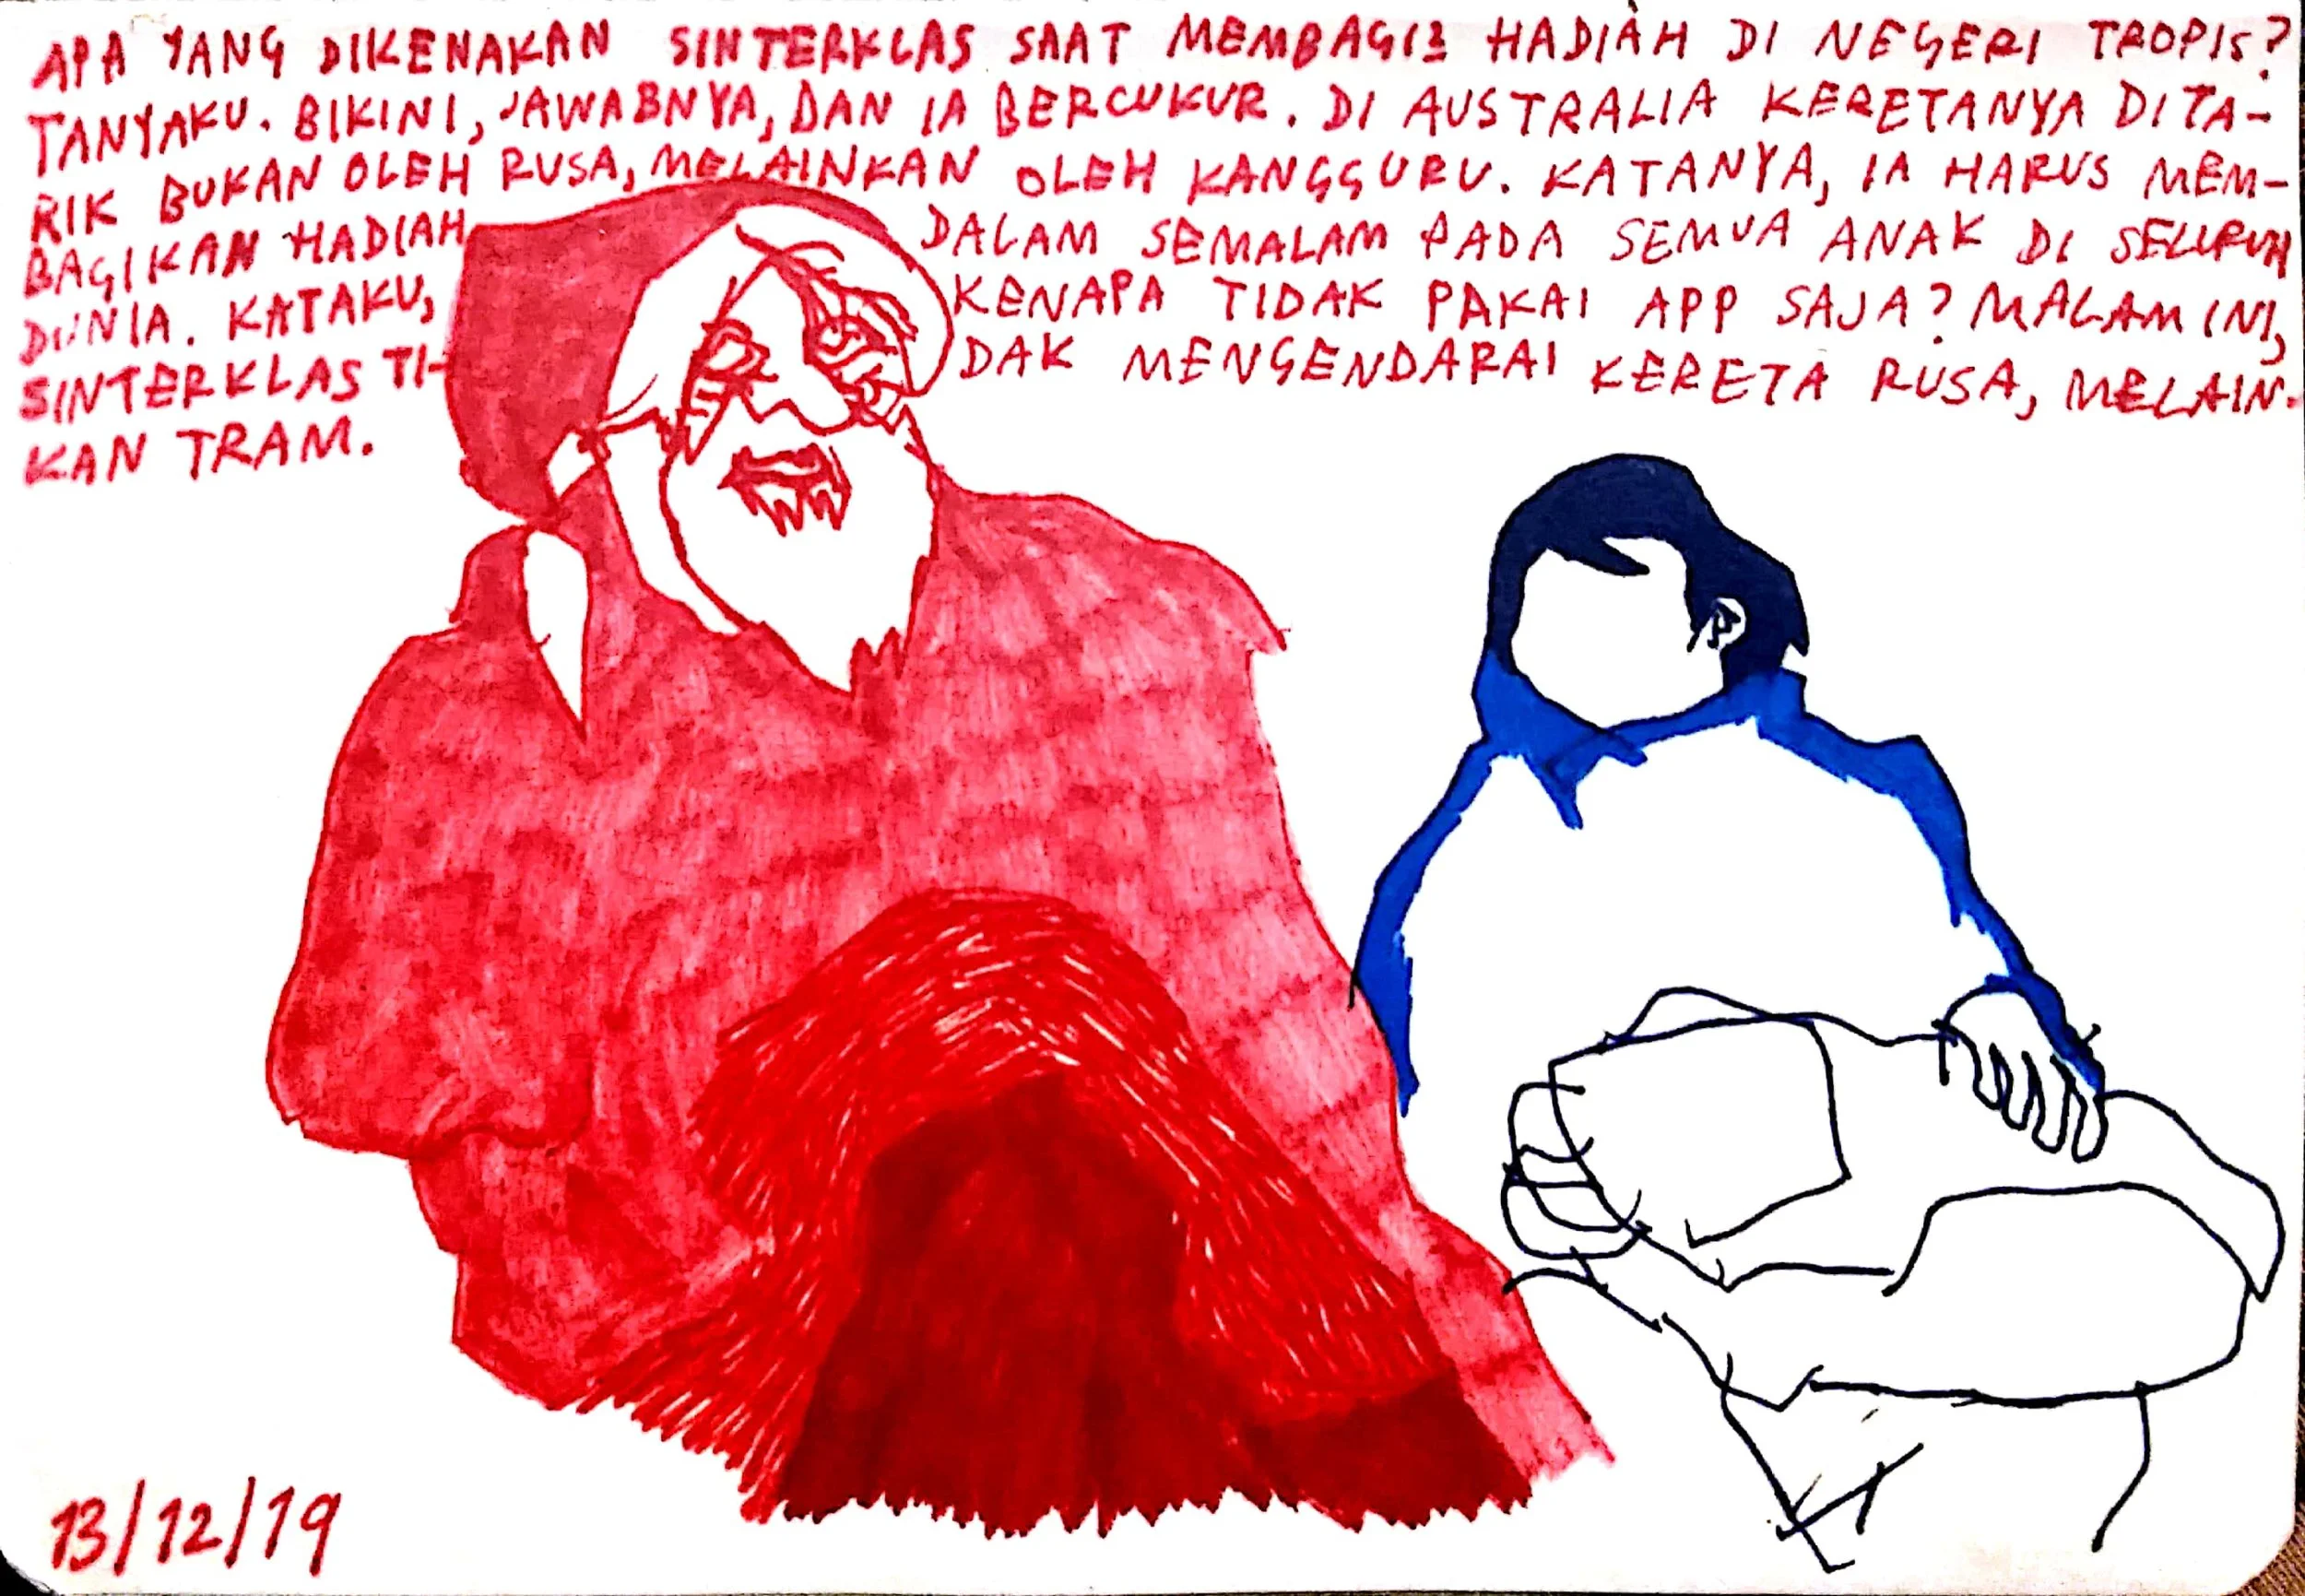 APA YANG DIKENAKAN SINTERKLAS SAAT MEMBAGIB HADIAH DI NEGERI TROPIS?
TANYAKU. BIKINI, JAWABNYA, DAN IA BERCUKUR. DI AUSTRALIA KERETANYA DITA-
RIK BUKAN OLEH RUSA, MELAINKAN OLEH KANGGURU. KATANYA, IA HARUS MEM-
BAGIKAN HADIAH DALAM SEMALAM PADA SEMUA ANAK DI SELURUH
DUNIA. KATAKU, KENAPA TIDAK PAKAI APP SAJA? MALAM INI,
SINTERKLAS TI- DAK MENGENDARAI KERETA RUSA, MELAIN-
KAN TRAM.
13/12/19